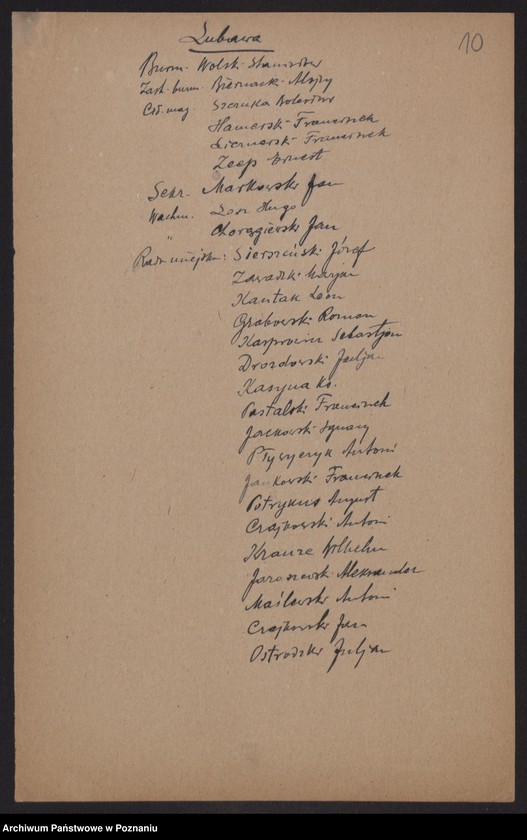 Lubawa
10
Burm. Wolski Stanisław
Zast. burm. Biernacki Alojzy
Czł. mag. Szczuka Bolesław
Hamerski Franciszek
Licznerski Franciszek
Zeep Ernest
Sekr. Markowski Jan
Wachm. Hugo
" Chorągiewski Jan
Rada miejska: Sierszeński Józef
Zawadzki Marjan
Kantak Leon
Grabowski Roman
Karpowicz Sebastjan
Drozdowski Juljan
Kasyna Ks.
Pastalski Franciszek
Jackowski Ignacy
Antoni
Jankowski Franciszek
Potrykus August
Czajkowski Antoni
Krauze Wilhelm
Jaraszewski Aleksander
Maślewski Antoni
Czajkowski Jan
Ostrodzki Juljan
Archiwum Państwowe w Poznaniu